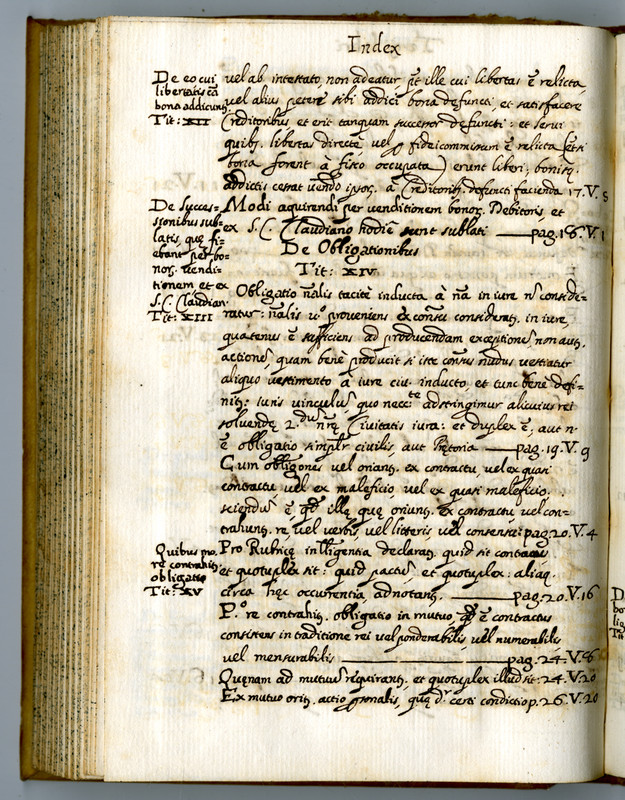 Index
De eo cui
libertatis cā
bona addicunt
Tit: XII
vel ab intestato, non adeatur ille cui libertas ē relicta,
vel alius petere sibi addici bona defuncti, et satisfacere
Creditoribus et erit tanquam successor defuncti: et servi
quibꝫ libertas directè vel fideicommissum ē relicta (etsi
bona forent à fisco occupata) erunt liberi; bonisqꝫ
addictis cessat vendo ipsoꝝ à Creditoribꝫ defuncti facienda 17. V. 5
De Succes=
sionibus sub=
latis, quę fi=
ebant per bo=
noꝝ vendi=
tionem et ex
S.C. Claudian.
Tit: XIII
Modi aquirendi per venditionem bonoꝝ Debitoris, et
ex S.C. Claudiano hodiè sunt sublati pag. 18. V. 1
De Obligationibus
Tit: XIV
Obligatio nālis tacitè inducta à nā in iure conside=
ratur: nālis proveniens ex considerat. in iure,
quatenus ē sufficiens ad producendam exceptione, non aut.
actione, quam benè producit si iste nudus vestiatur
aliquo vestimento à iure civ. inducto, et tunc benè defi=
nit.: iuris vinculu, quo adstringimur alicuius rei
solvendę 2.dum nrę Civitatis iura: et duplex ē, aut n.
ē obligatio civilis, aut Prętoria pag. 19. V. 9
Cum obligones vel oriant. ex contractu vel ex quasi
contractu vel ex maleficio vel ex quasi maleficio.
sciendu ē qd illę quę oriunt. ex contractu vel con=
trahunt. re, vel verbis, vel litteris vel consensu pag. 20. V. 4
Quibus mo.
re contrahit.
obligatio
Tit: XV
Pro Rubricę declarat. quid sit contactu
et quotuplex sit: quid pactu, et quotuplex: aliaq.
circa hęc occurrentia adnotant. pag. 20. V. 16
P.º re contrahit. obligatio in mutuo qd ē contractus
consistens in traditione rei vel ponderabilis vel numerabilis
vel mensurabilis pag. 24. V. 6
Quęnam ad mutuu requirant. et quotuplex illud sit: 24. V. 20
Ex mutuo orit. actio psonalis, quę dr. certi condictio p. 26. V. 20